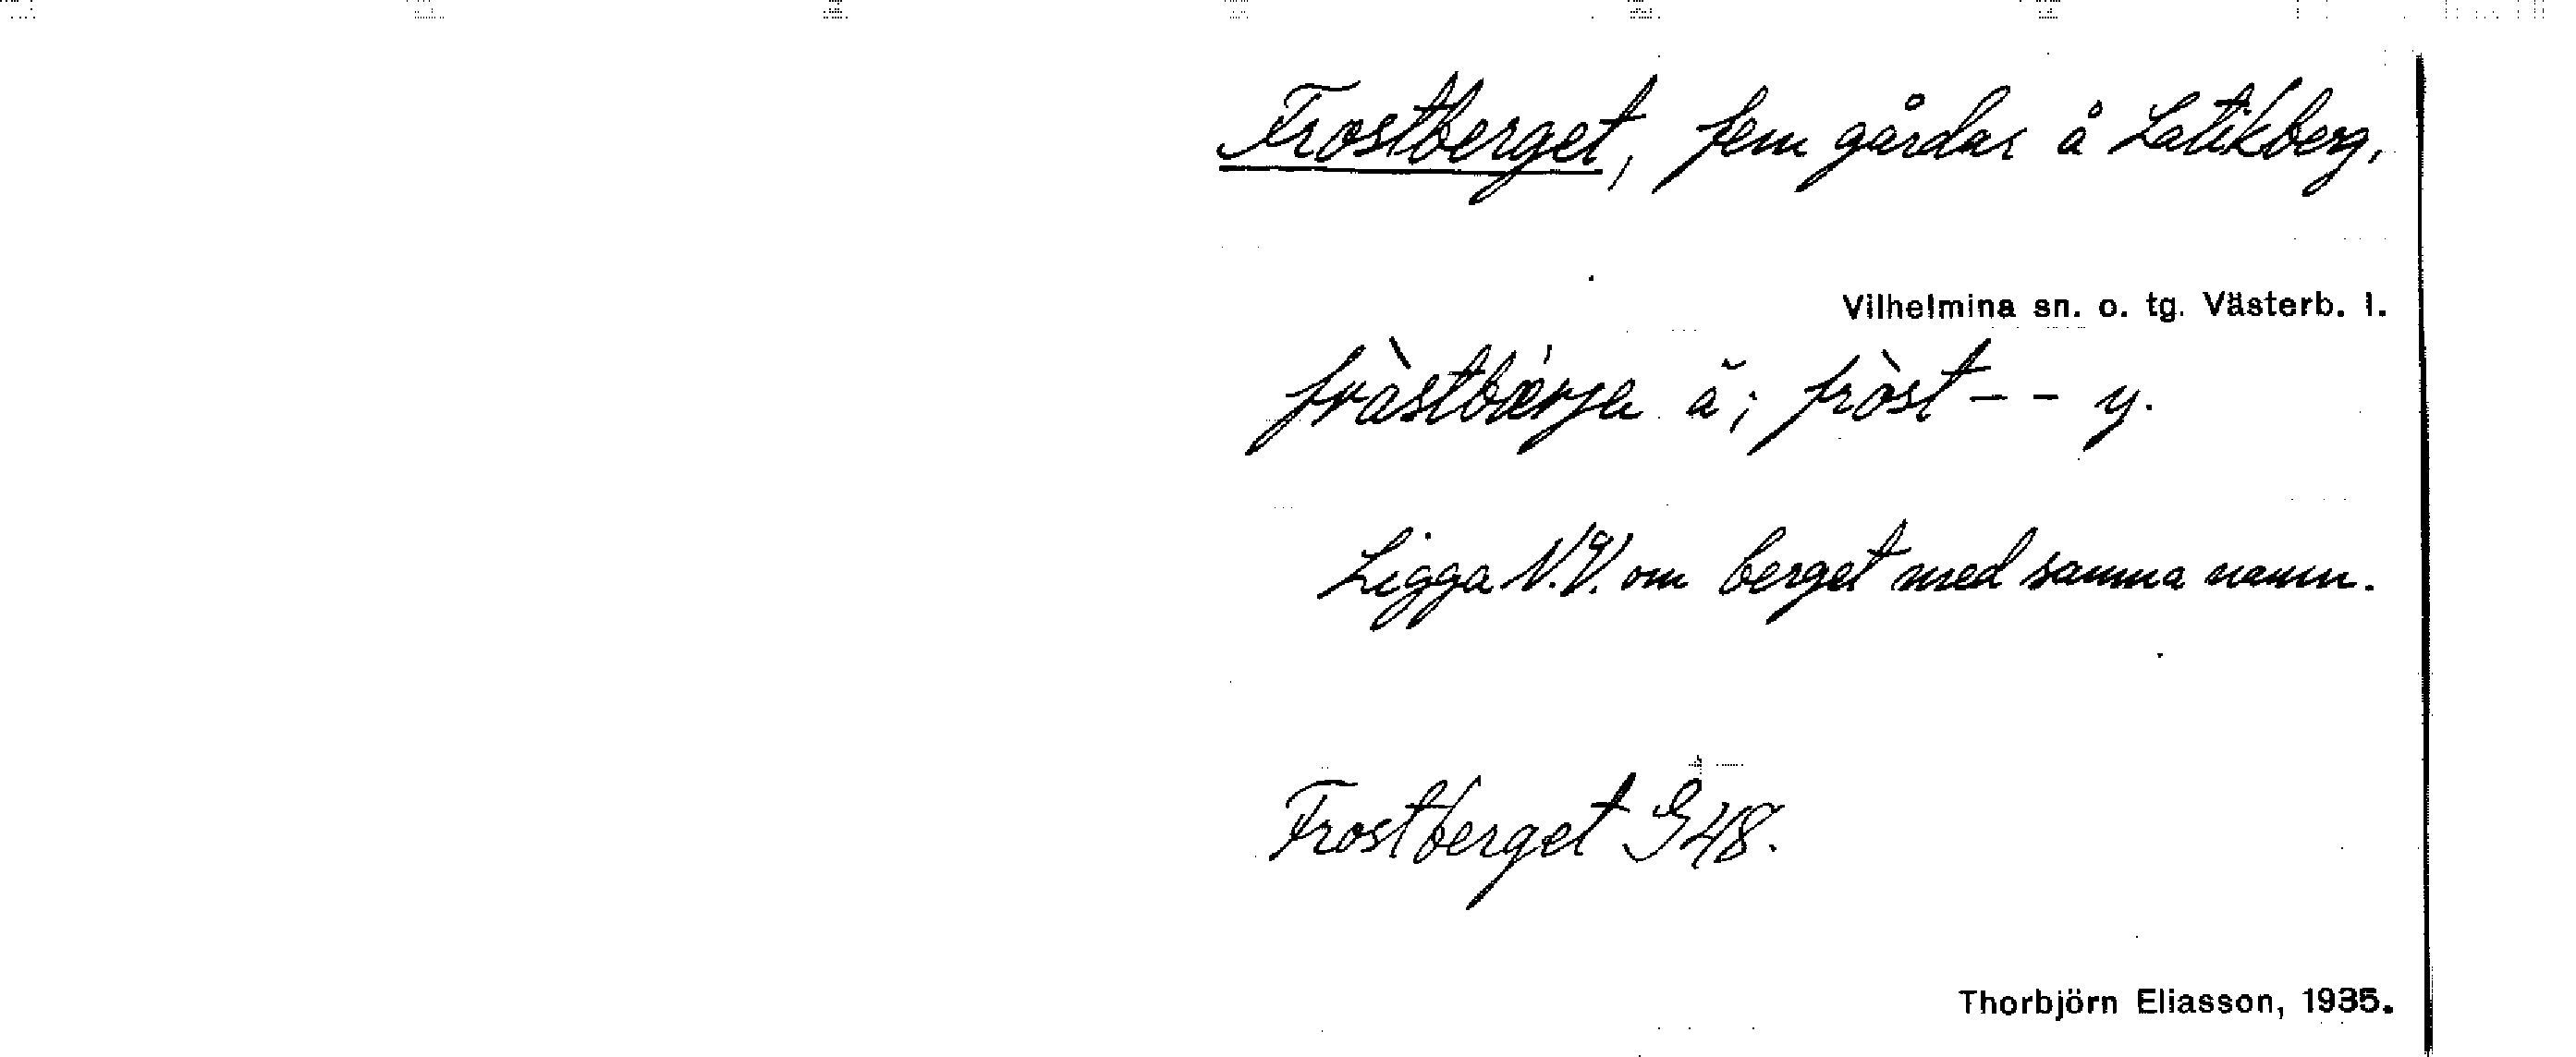 Frostberget, fem gårdar å Latikberg,
Vilhelmina sn. o. tg. Västerb. l.
fràstbærje ä; fròst -- y.
Ligga N.V. om berget med samma namn.
Frostberget G48.
Thorbjörn Eliasson, 1935.